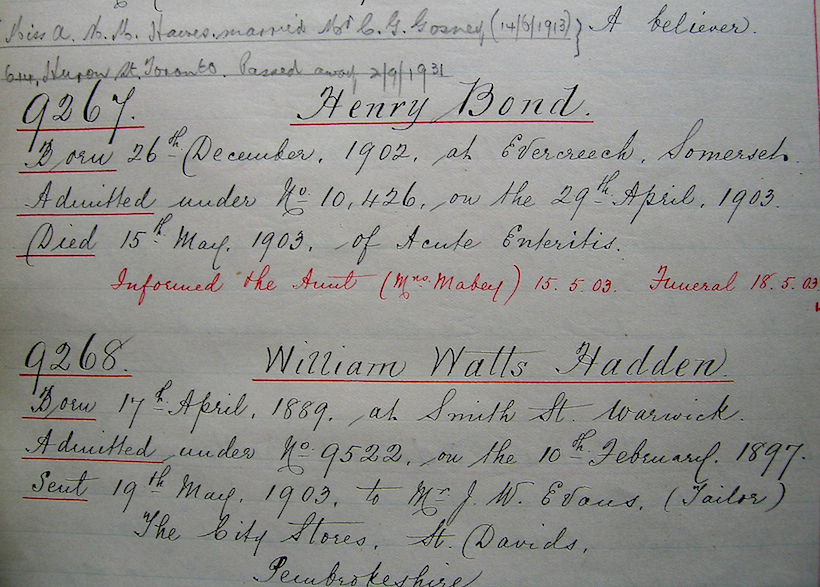 Miss A. M. M. Hawes. married Mr C. G. Gosney (14/6/1913) } A believer.
644, Huron St. Toronto. Passed away 2/9/1931
9267. Henry Bond.
Born 26th December, 1902, at Evercreech, Somerset.
Admitted under No. 10,426, on the 29th April, 1903.
Died 15th May, 1903, of Acute Enteritis.
Informed the Aunt (Mrs. Mabey) 15.5.03. Funeral 18.5.03
9268. William Watts Hadden.
Born 17th April, 1889, at Smith St. Warwick.
Admitted under No. 9522, on the 10th February, 1897.
Sent 19th May, 1903, to Mr J. W. Evans, (Tailor)
The City Stores, St. Davids,
Pembrokeshire